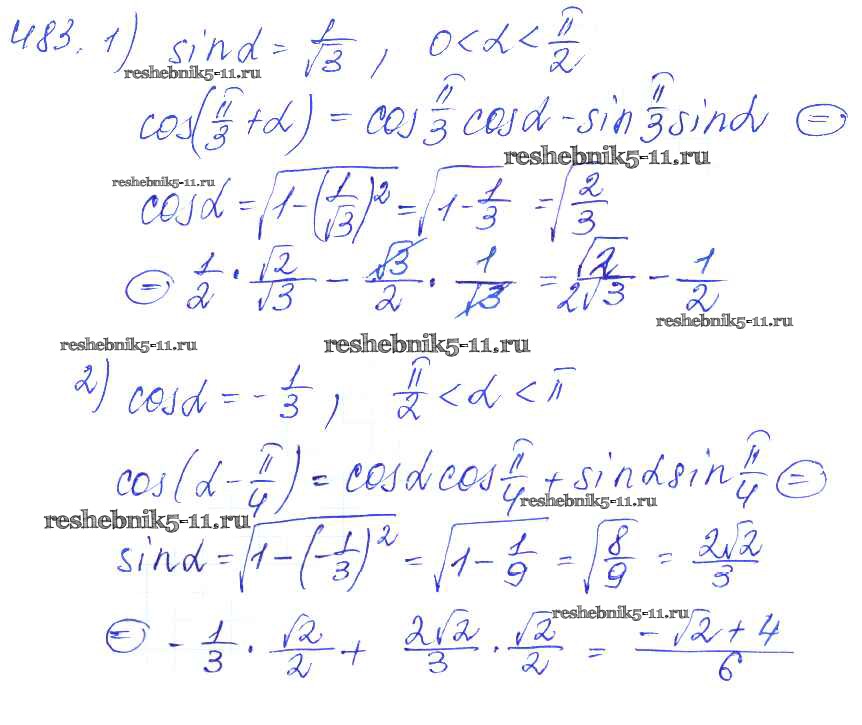 483. 1) sinα = 1/√3, 0 < α < π/2
reshebnik5-11.ru
cos(π/3 + α) = cos π/3 cosα - sin π/3 sinα ⊜
reshebnik5-11.ru
reshebnik5-11.ru
cosα = √(1 - (1/√3)²) = √(1 - 1/3) = √(2/3)
⊜ 1/2 · √2/√3 - √3/2 · 1/√3 = √2/2√3 - 1/2
reshebnik5-11.ru
reshebnik5-11.ru reshebnik5-11.ru
2) cosα = -1/3, π/2 < α < π
cos(α - π/4) = cosα cos π/4 + sinα sin π/4 ⊜
reshebnik5-11.ru
reshebnik5-11.ru
sinα = √(1 - (-1/3)²) = √(1 - 1/9) = √(8/9) = 2√2/3
reshebnik5-11.ru
⊜ -1/3 · √2/2 + 2√2/3 · √2/2 = (-√2 + 4)/6